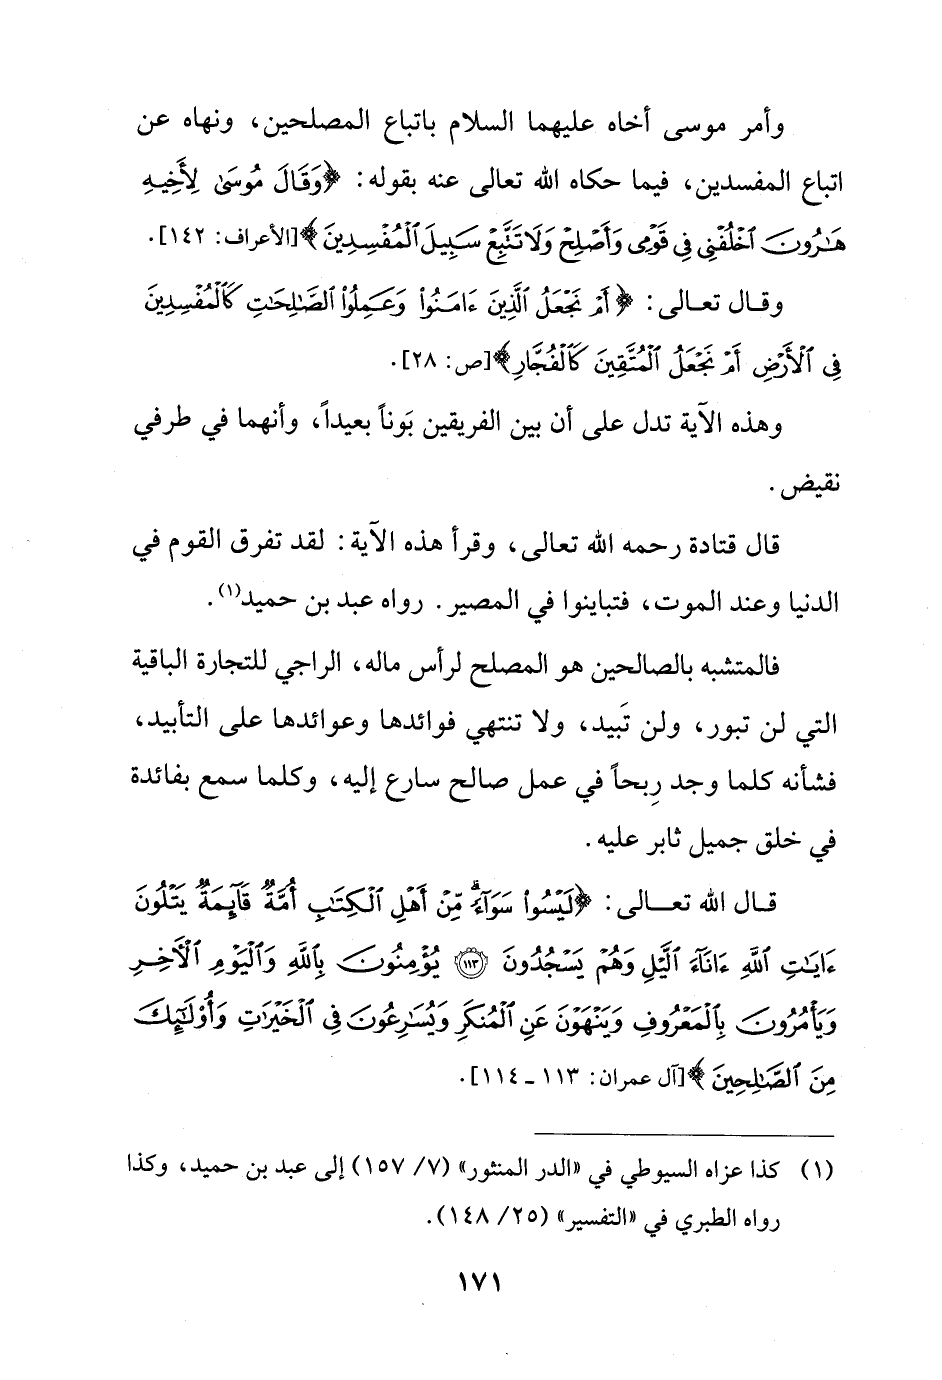 وأمر موسى أخاه عليهما السلام باتباع المصلحين، ونهاه عن
اتباع المفسدين، فيما حكاه الله تعالى عنه بقوله: ﴿وَقَالَ مُوسَىٰ لِأَخِيهِ
هَٰرُونَ ٱخْلُفْنِى فِى قَوْمِى وَأَصْلِحْ وَلَا تَتَّبِعْ سَبِيلَ ٱلْمُفْسِدِينَ﴾ [الأعراف: ١٤٢].
وقال تعالى: ﴿أَمْ نَجْعَلُ ٱلَّذِينَ ءَامَنُوا۟ وَعَمِلُوا۟ ٱلصَّٰلِحَٰتِ كَٱلْمُفْسِدِينَ
فِى ٱلْأَرْضِ أَمْ نَجْعَلُ ٱلْمُتَّقِينَ كَٱلْفُجَّارِ﴾ [ص: ٢٨].
وهذه الآية تدل على أن بين الفريقين بَوناً بعيداً، وأنهما في طرفي
نقيض.
قال قتادة رحمه الله تعالى، وقرأ هذه الآية: لقد تفرق القوم في
الدنيا وعند الموت، فتباينوا في المصير. رواه عبد بن حميد(١).
فالمتشبه بالصالحين هو المصلح لرأس ماله، الراجي للتجارة الباقية
التي لن تبور، ولن تَبيد، ولا تنتهي فوائدها وعوائدها على التأبيد،
فشأنه كلما وجد رِبحاً في عمل صالح سارع إليه، وكلما سمع بفائدة
في خلق جميل ثابر عليه.
قال الله تعالى: ﴿لَيْسُوا۟ سَوَآءً ۗ مِّنْ أَهْلِ ٱلْكِتَٰبِ أُمَّةٌ قَآئِمَةٌ يَتْلُونَ
ءَايَٰتِ ٱللَّهِ ءَانَآءَ ٱلَّيْلِ وَهُمْ يَسْجُدُونَ ١١٣ يُؤْمِنُونَ بِٱللَّهِ وَٱلْيَوْمِ ٱلْـَٔاخِرِ
وَيَأْمُرُونَ بِٱلْمَعْرُوفِ وَيَنْهَوْنَ عَنِ ٱلْمُنكَرِ وَيُسَٰرِعُونَ فِى ٱلْخَيْرَٰتِ وَأُو۟لَٰٓئِكَ
مِنَ ٱلصَّٰلِحِينَ﴾ [آل عمران: ١١٣ ـ ١١٤].
(١) كذا عزاه السيوطي في «الدر المنثور» (٧/ ١٥٧) إلى عبد بن حميد، وكذا
رواه الطبري في «التفسير» (٢٥/ ١٤٨).
١٧١